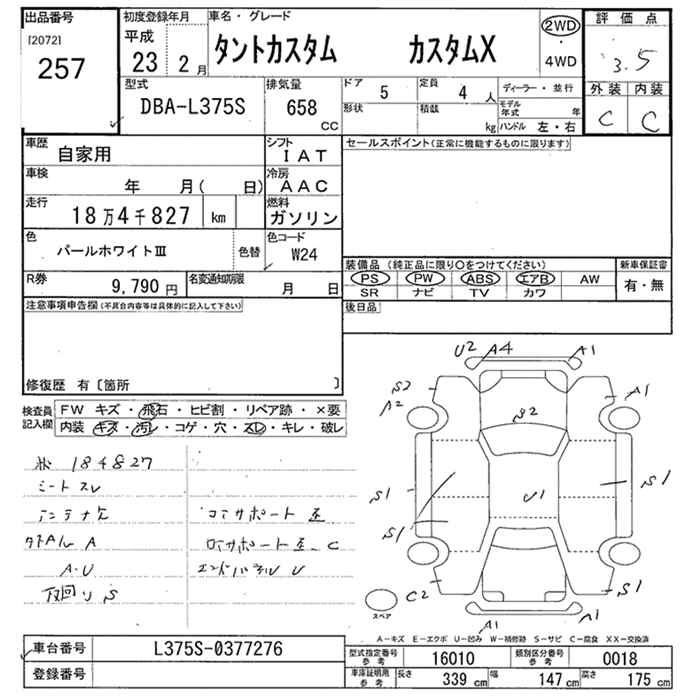 出品番号
[2072]
257
初度登録年月
平成
23 2月
車名・グレード
タントカスタム カスタムX
2WD
・
4WD
評価点
3.5
外装 内装
C C
型式
DBA-L375S
排気量
658
CC
ドア 5
定員 4人
形状
積載
kg
ディーラー・並行
モデル年式 年
ハンドル 左・右
車歴
自家用
シフト
IAT
車検
年 月( 日)
冷房
AAC
走行
18万4千827 km
燃料
ガソリン
色
パールホワイトⅢ
色替
色コード
W24
R券
9,790円
名変通知期限
月 日
セールスポイント(正常に機能するものに限ります)
装備品(純正品に限り○をつけてください)
PS PW ABS エアB AW
SR ナビ TV カワ
新車保証書
有・無
後日品
注意事項申告欄(不具合内容等は具体的に記入して下さい)
修復歴 有〔箇所 〕
検査員記入欄
FW キズ・飛石・ヒビ割・リペア跡・×要
内装 キズ・汚レ・コゲ・穴・スレ・キレ・破レ
184827
シートスレ
アンテナ欠
A
A・U
下回りS
コアサポート歪
ロアサポート歪、C
エンドパネルU
U2 A4 A1
S2
A2
S2
A1
S1
S1
U1
S1
C2
S1
A1
A1
スペア
A-キズ E-エクボ U-凹み W-補修跡 S-サビ C-腐食 XX-交換済
車台番号
L375S-0377276
登録番号
型式指定番号
参考
16010
類別区分番号
参考
0018
車庫証明用
参考
長さ 339cm
幅 147cm
高さ 175cm